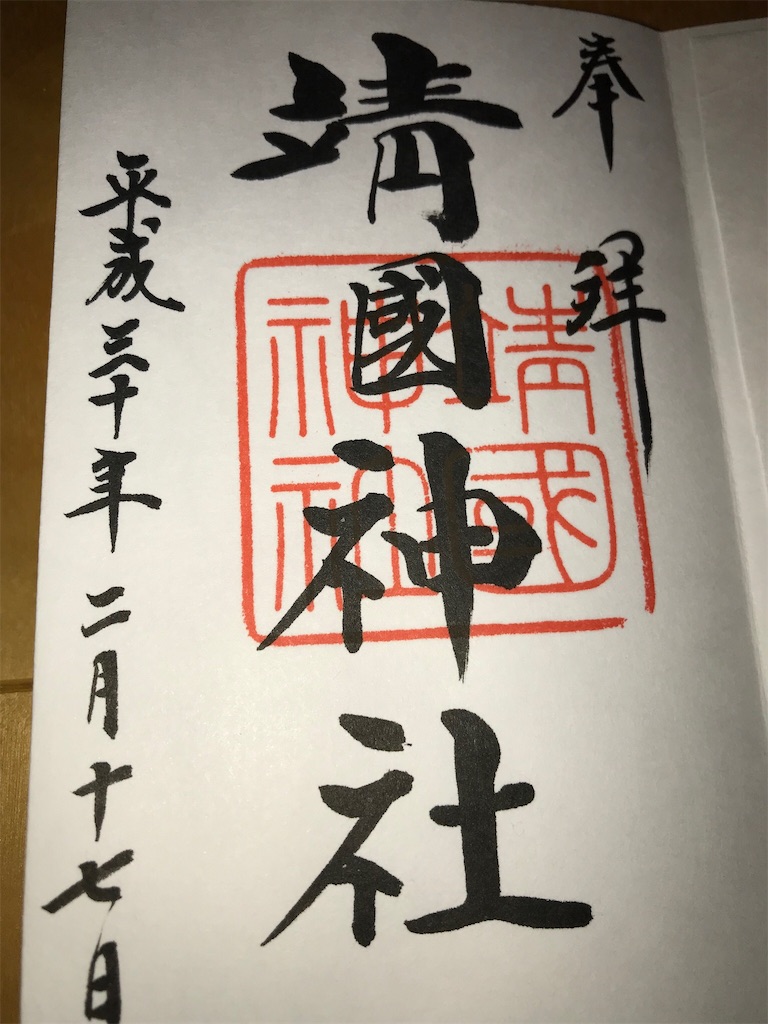 奉拝
靖國神社
靖國
神社
平成三十年二月十七日